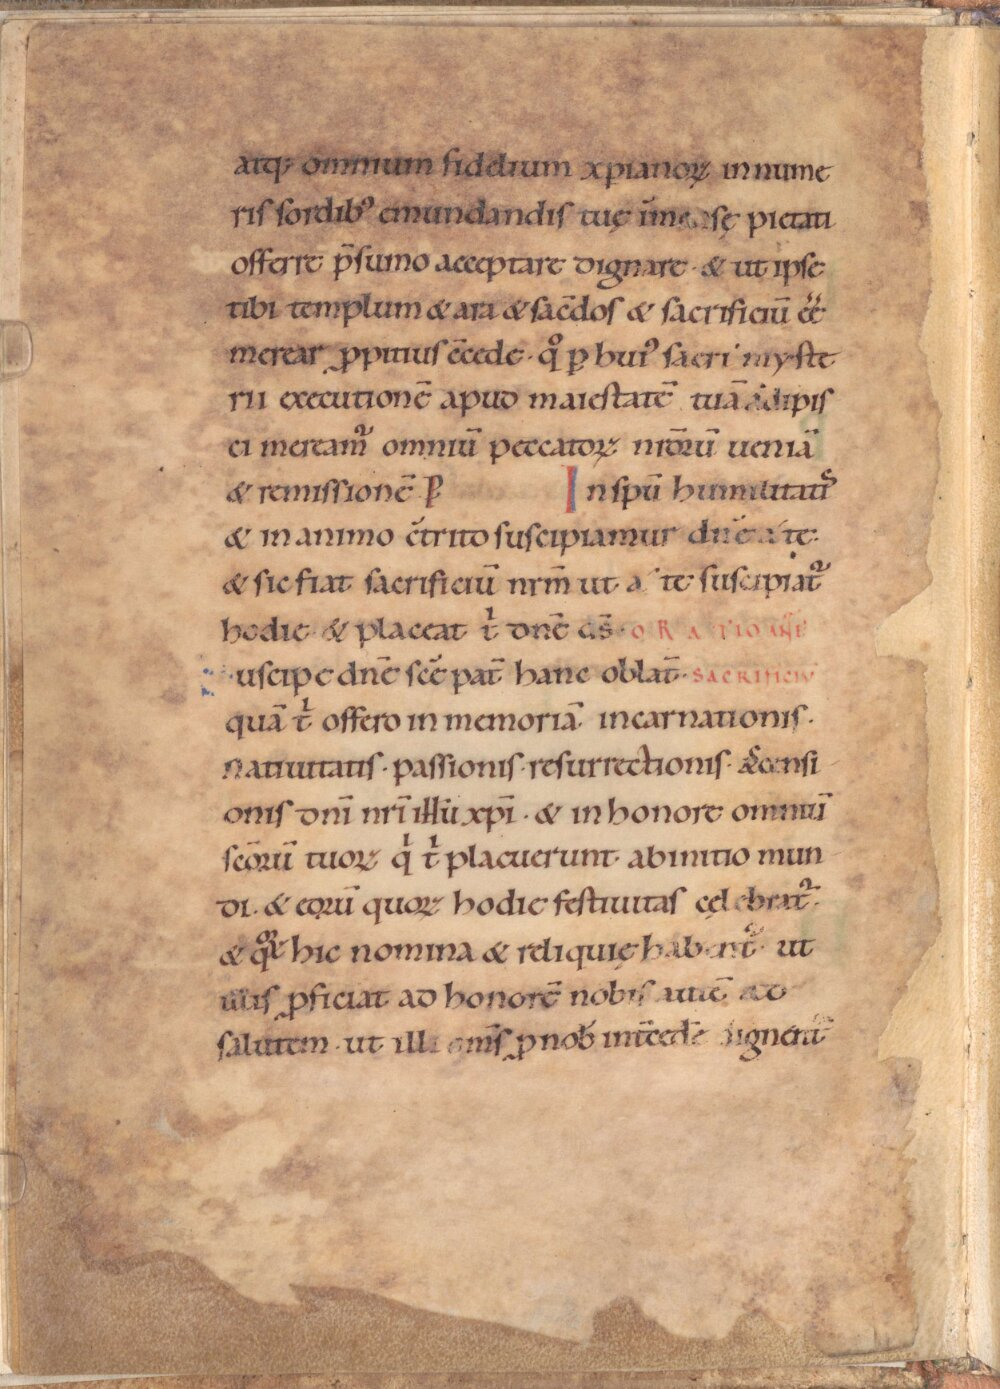 atq; omnium fidelium xpianoꝝ innume
ris sordib⁹ emundandis tuę im̄ensę pietati
offerre p̄sumo acceptare dignare · & ut ipse
tibi templum & ara & sac̄dos & sacrificiū ēē
merear ꝓpitius c̄cede · q̊ ꝑ hui⁹ sacri myste
rii executionē apud maiestatē tuā adipis
ci meream̃ omniū peccatoꝝ nr̄orū ueniā
& remissionē ꝑ In spū humilitatis
& in animo c̄trito suscipiamur dn̄e a te:
& sic fiat sacrificiū nr̄m ut a te suscipiat̃
hodie & placeat t̍ dn̄e ds̄·
uscipe dn̄e sc̄e pat̄ hanc oblat̄· SACRIFICIV̄
quā t̍ offero in memoriā incarnationis·
natiuitatis · passionis · resurrectionis · ascensi
onis dn̄i nr̄i ihū xp̄i · & in honore omniū
sc̄orū tuoꝝ q̍ t̍ placuerunt ab initio mun
di · & eorū quoꝝ hodie festiuitas celebrat̃·
& q̊ꝝ hic nomina & reliquię habent̃ ut
illis ꝓficiat ad honorē nobis autē ad
salutem · ut illi om̄s ꝓ nob̄ int̄cede dignent̃